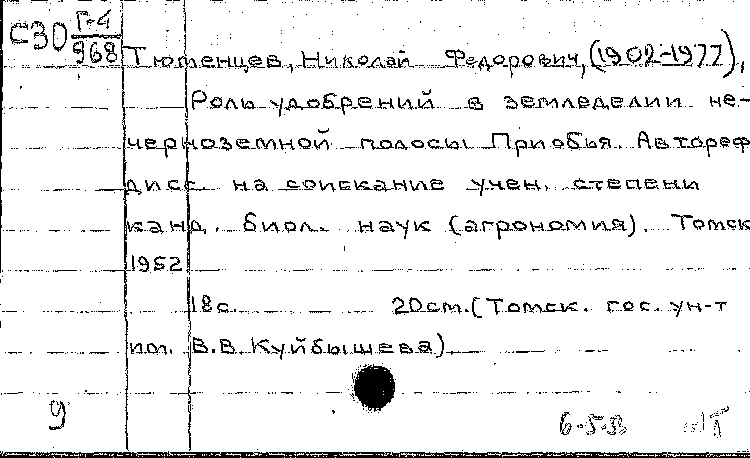 С30 Г-4
968
Тюменцев, Николай Федорович, (1902-1977),
Роль удобрений в земледелии не-
черноземной полосы Приобья. Автореф
дисс. на соискание учен. степени
канд. биол. наук (агрономия). Томск
1952
18с. 20см. (Томск. гос. ун-т
им. В.В. Куйбышева)
9
6-5-53